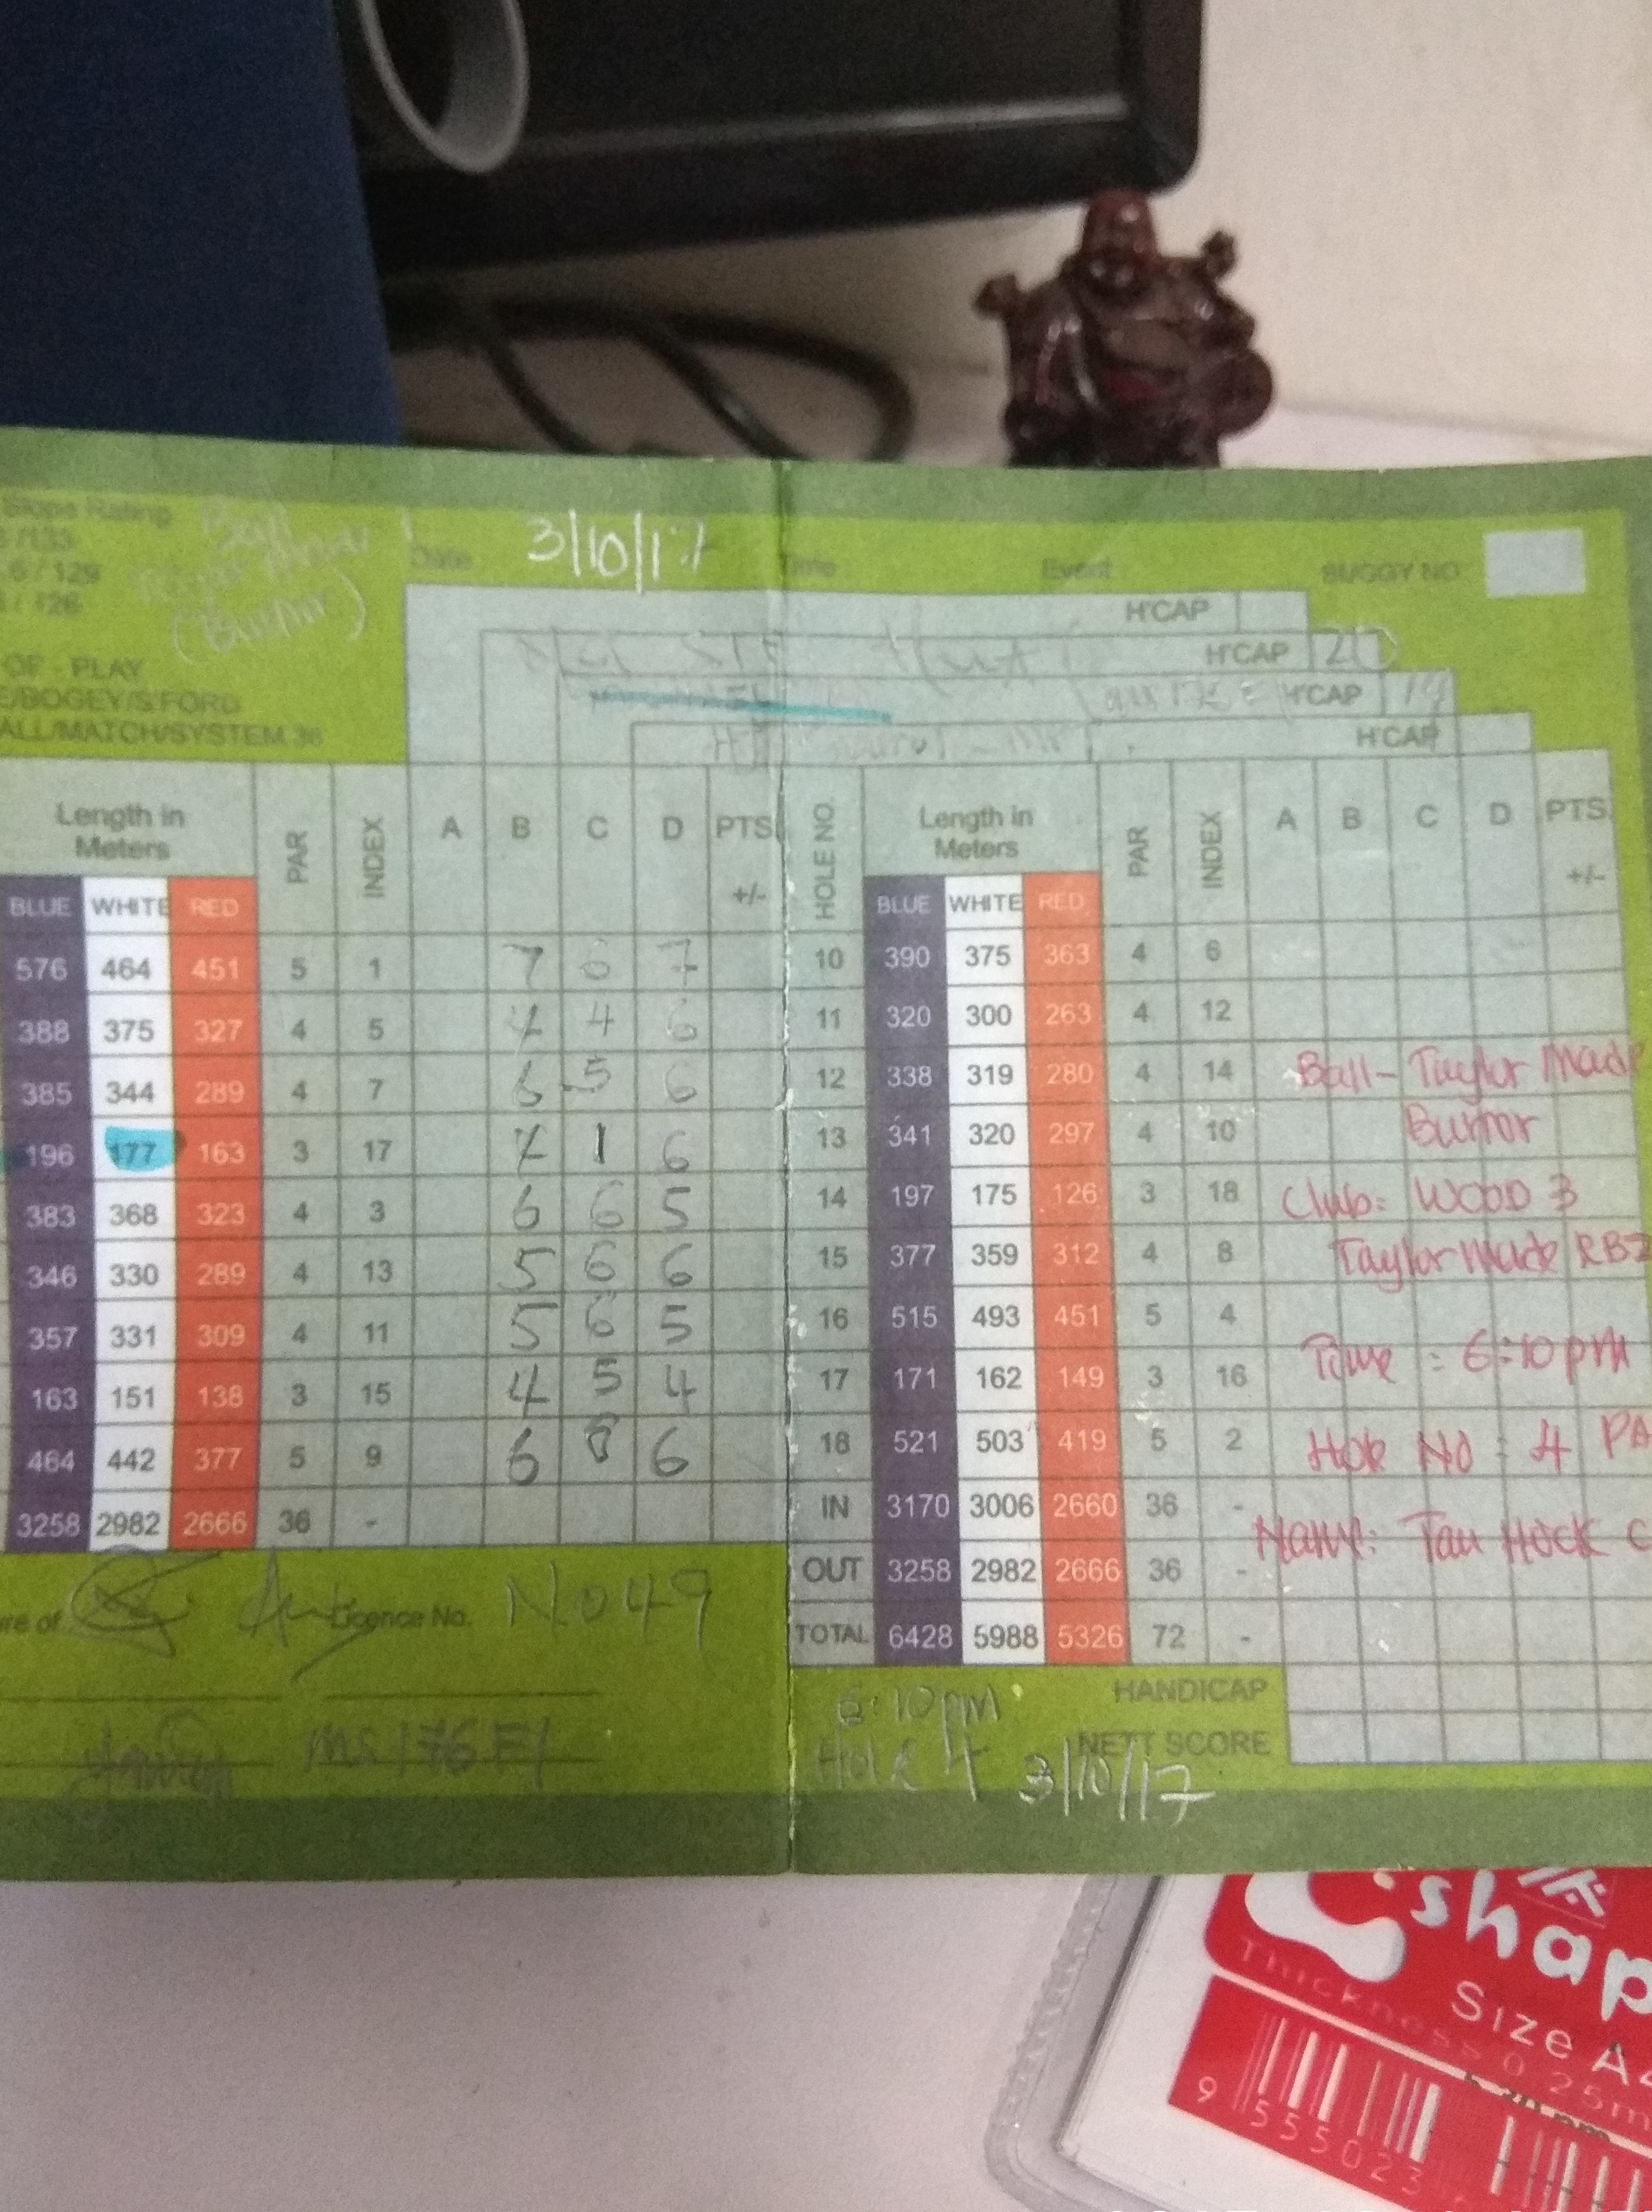 Slope Rating
/133
.6 / 129
/ 126
Ball
(Burnor)
Date 3/10/17 Time Event BUGGY NO
H'CAP
H'CAP 20
H'CAP 14
H'CAP
OF - PLAY
E/BOGEY/S'FORD
ALL/MATCH/SYSTEM 36
Length in Meters PAR INDEX A B C D PTS +/-
BLUE WHITE RED
576 464 451 5 1 7 6 7
388 375 327 4 5 4 4 6
385 344 289 4 7 6 5 6
196 177 163 3 17 4 1 6
383 368 323 4 3 6 6 5
346 330 289 4 13 5 6 6
357 331 309 4 11 5 6 5
163 151 138 3 15 4 5 4
464 442 377 5 9 6 8 6
3258 2982 2666 36 -
re of Licence No. No 49
HOLE NO. Length in Meters PAR INDEX A B C D PTS +/-
BLUE WHITE RED
10 390 375 363 4 6
11 320 300 263 4 12
12 338 319 280 4 14
13 341 320 297 4 10
14 197 175 126 3 18
15 377 359 312 4 8
16 515 493 451 5 4
17 171 162 149 3 16
18 521 503 419 5 2
IN 3170 3006 2660 36 -
OUT 3258 2982 2666 36 -
TOTAL 6428 5988 5326 72 -
HANDICAP
NETT SCORE
Ball - Taylor Made
Burnor
Club: WOOD 3
Taylor Made RBZ
Time : 6:10 pm
Hole NO : 4 PA
Name: Tan Hock C
6:10pm
Hole 4 3/10/17
shap
Thickness 0.25m
Size A4
9 555023